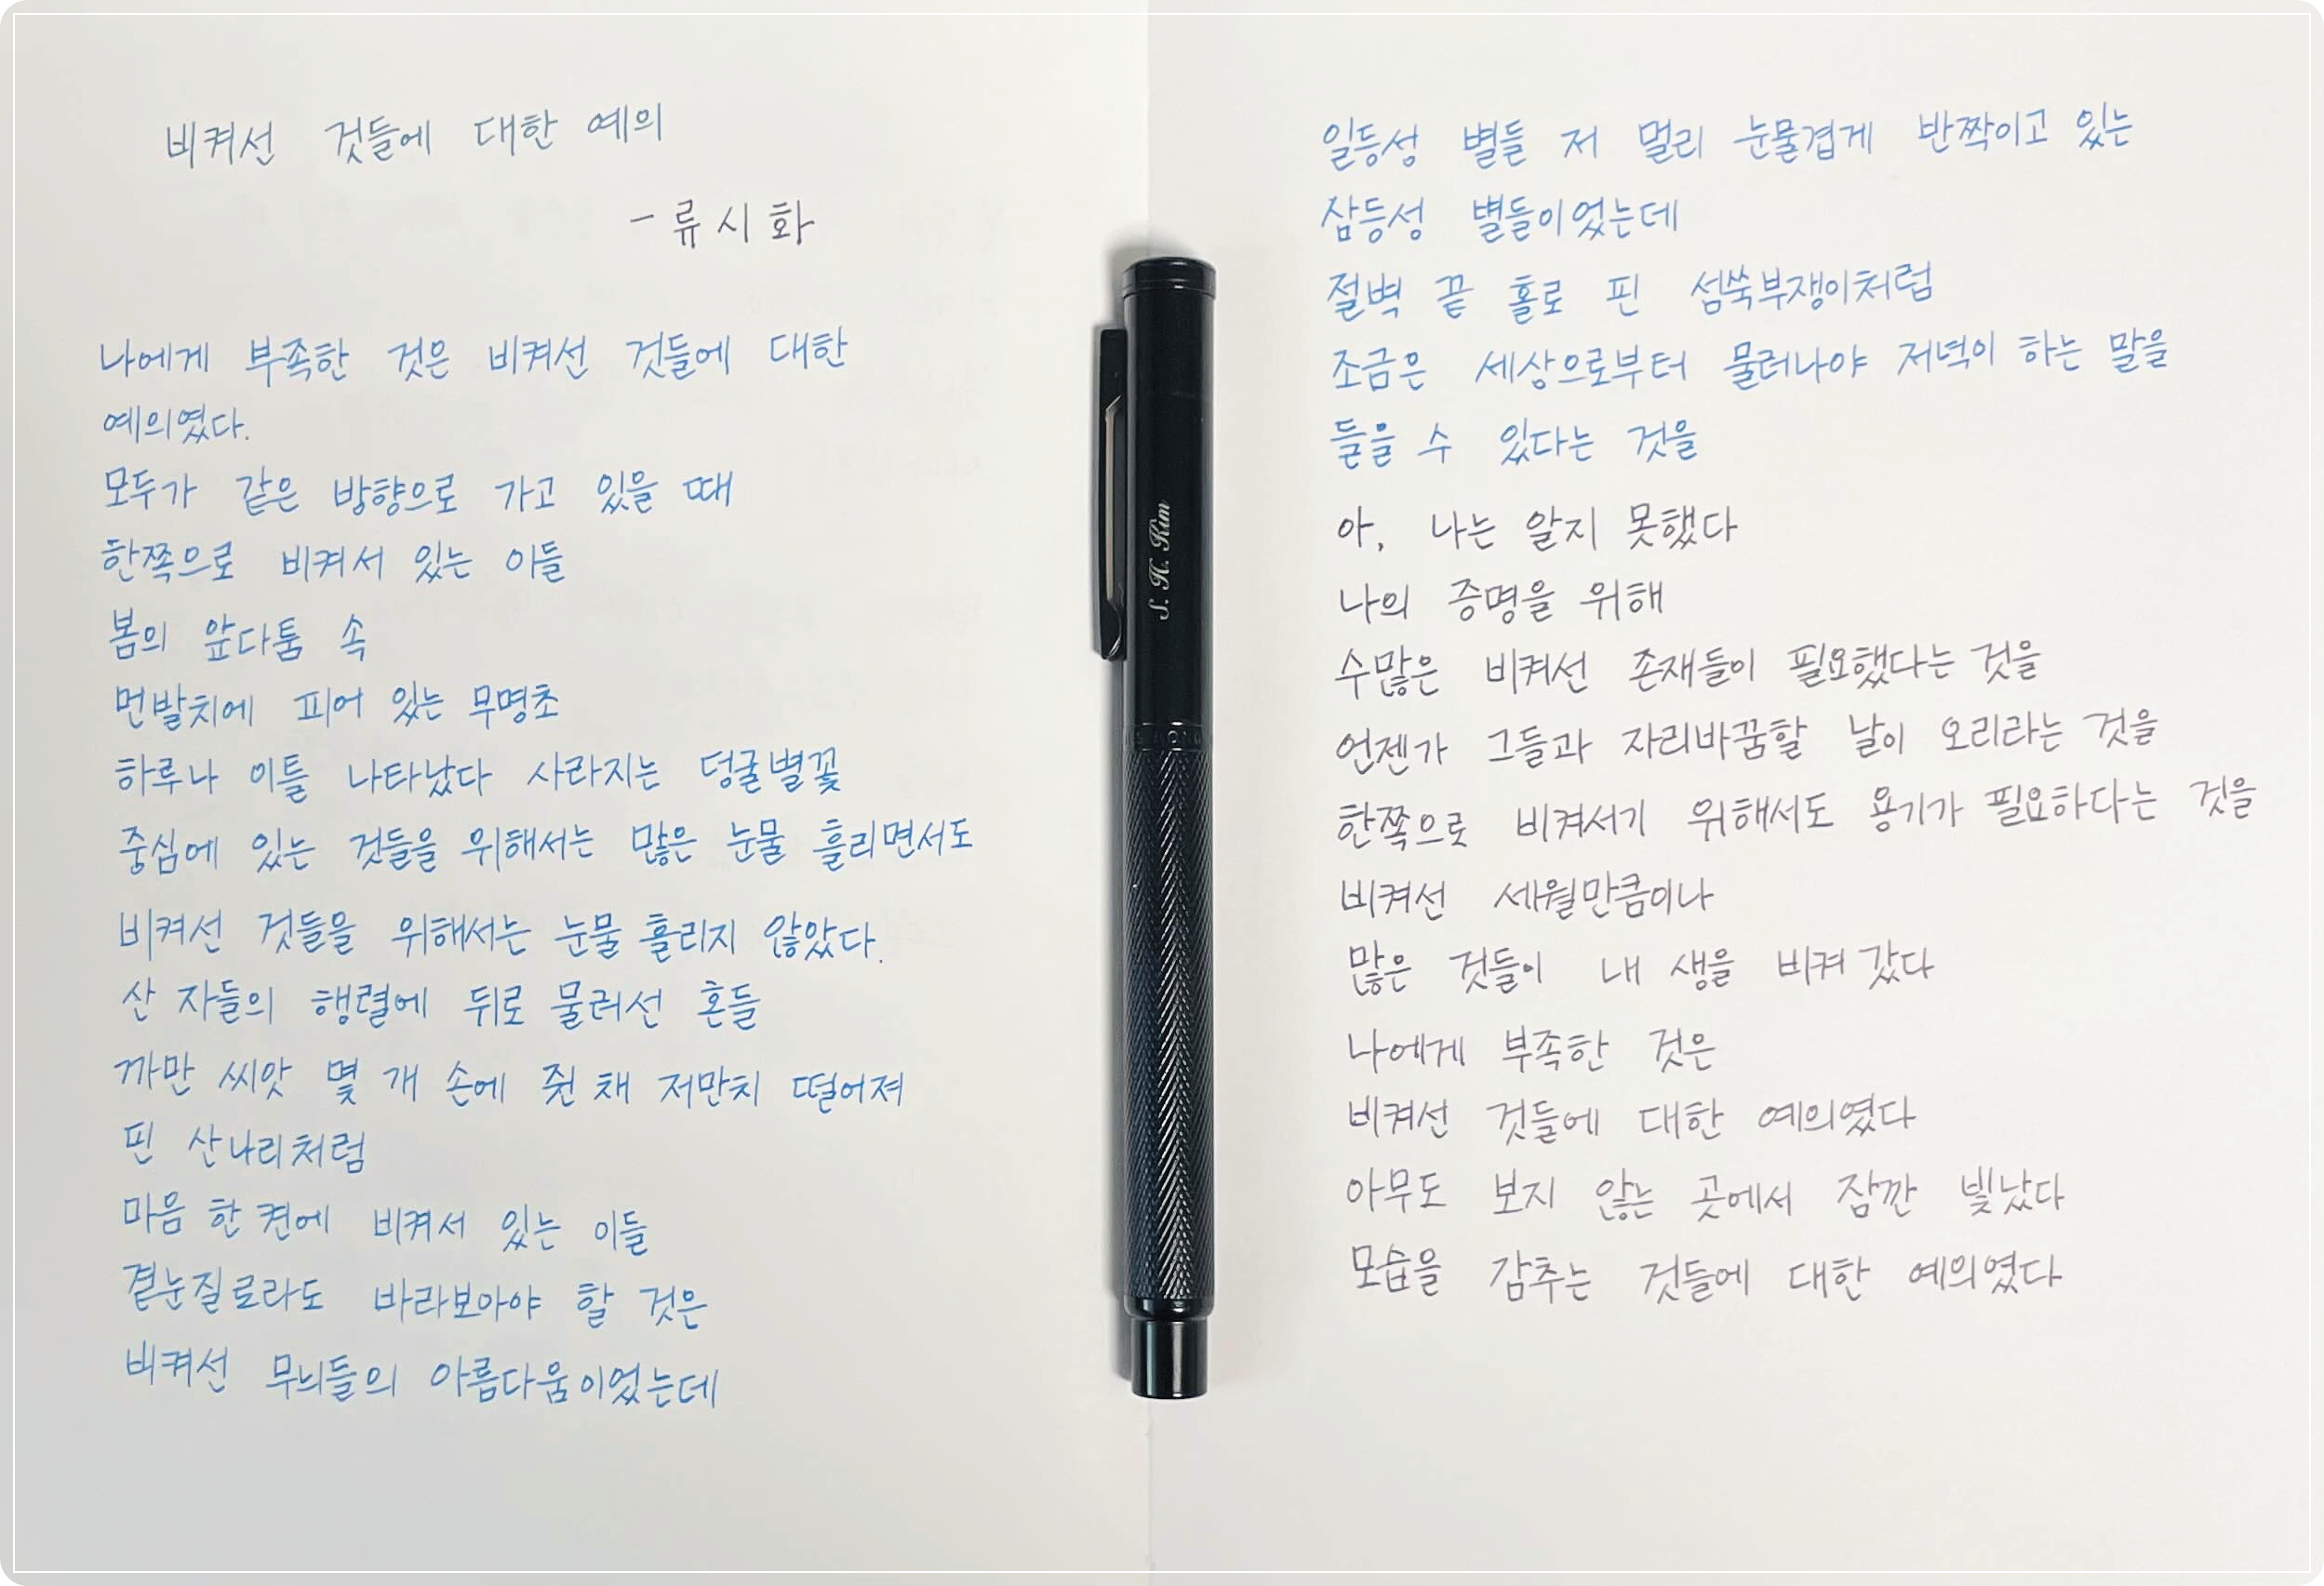 비켜선 것들에 대한 예의
- 류시화
나에게 부족한 것은 비켜선 것들에 대한
예의였다.
모두가 같은 방향으로 가고 있을 때
한쪽으로 비켜서 있는 이들
봄의 앞다툼 속
먼발치에 피어 있는 무명초
하루나 이틀 나타났다 사라지는 덩굴별꽃
중심에 있는 것들을 위해서는 많은 눈물 흘리면서도
비켜선 것들을 위해서는 눈물 흘리지 않았다.
산 자들의 행렬에 뒤로 물러선 혼들
까만 씨앗 몇 개 손에 쥔 채 저만치 떨어져
핀 산나리처럼
마음 한 켠에 비켜서 있는 이들
곁눈질로라도 바라보아야 할 것은
비켜선 무늬들의 아름다움이었는데
일등성 별들 저 멀리 눈물겹게 반짝이고 있는
삼등성 별들이었는데
절벽 끝 홀로 핀 섬쑥부쟁이처럼
조금은 세상으로부터 물러나야 저녁이 하는 말을
들을 수 있다는 것을
아, 나는 알지 못했다
나의 증명을 위해
수많은 비켜선 존재들이 필요했다는 것을
언젠가 그들과 자리바꿈할 날이 오리라는 것을
한쪽으로 비켜서기 위해서도 용기가 필요하다는 것을
비켜선 세월만큼이나
많은 것들이 내 생을 비켜 갔다
나에게 부족한 것은
비켜선 것들에 대한 예의였다
아무도 보지 않는 곳에서 잠깐 빛났다
모습을 감추는 것들에 대한 예의였다
S. H. Kim